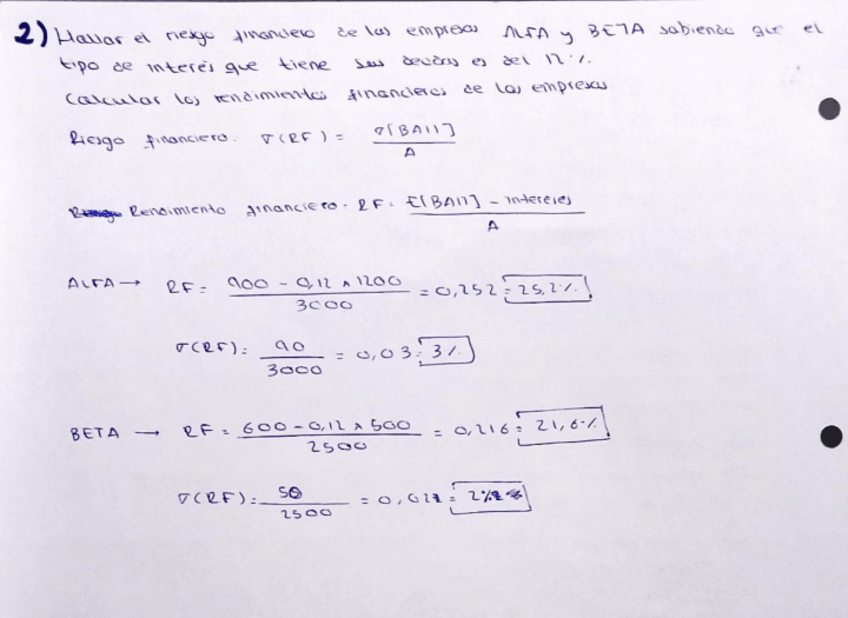 2) Hallar el riesgo financiero de las empresas ALFA y BETA sabiendo que el
tipo de interés que tiene sus deudas es del 12%.
Calcular los rendimientos financieros de las empresas
Riesgo financiero. σ(RF) = σ[BAII] / A
Rendimiento financiero. RF = E[BAII] - Intereses / A
ALFA → RF = 900 - 0,12 x 1200 / 3000 = 0,252 = 25,2%
σ(RF) = 90 / 3000 = 0,03 = 3%
BETA → RF = 600 - 0,12 x 500 / 2500 = 0,216 = 21,6%
σ(RF) = 50 / 2500 = 0,02 = 2%